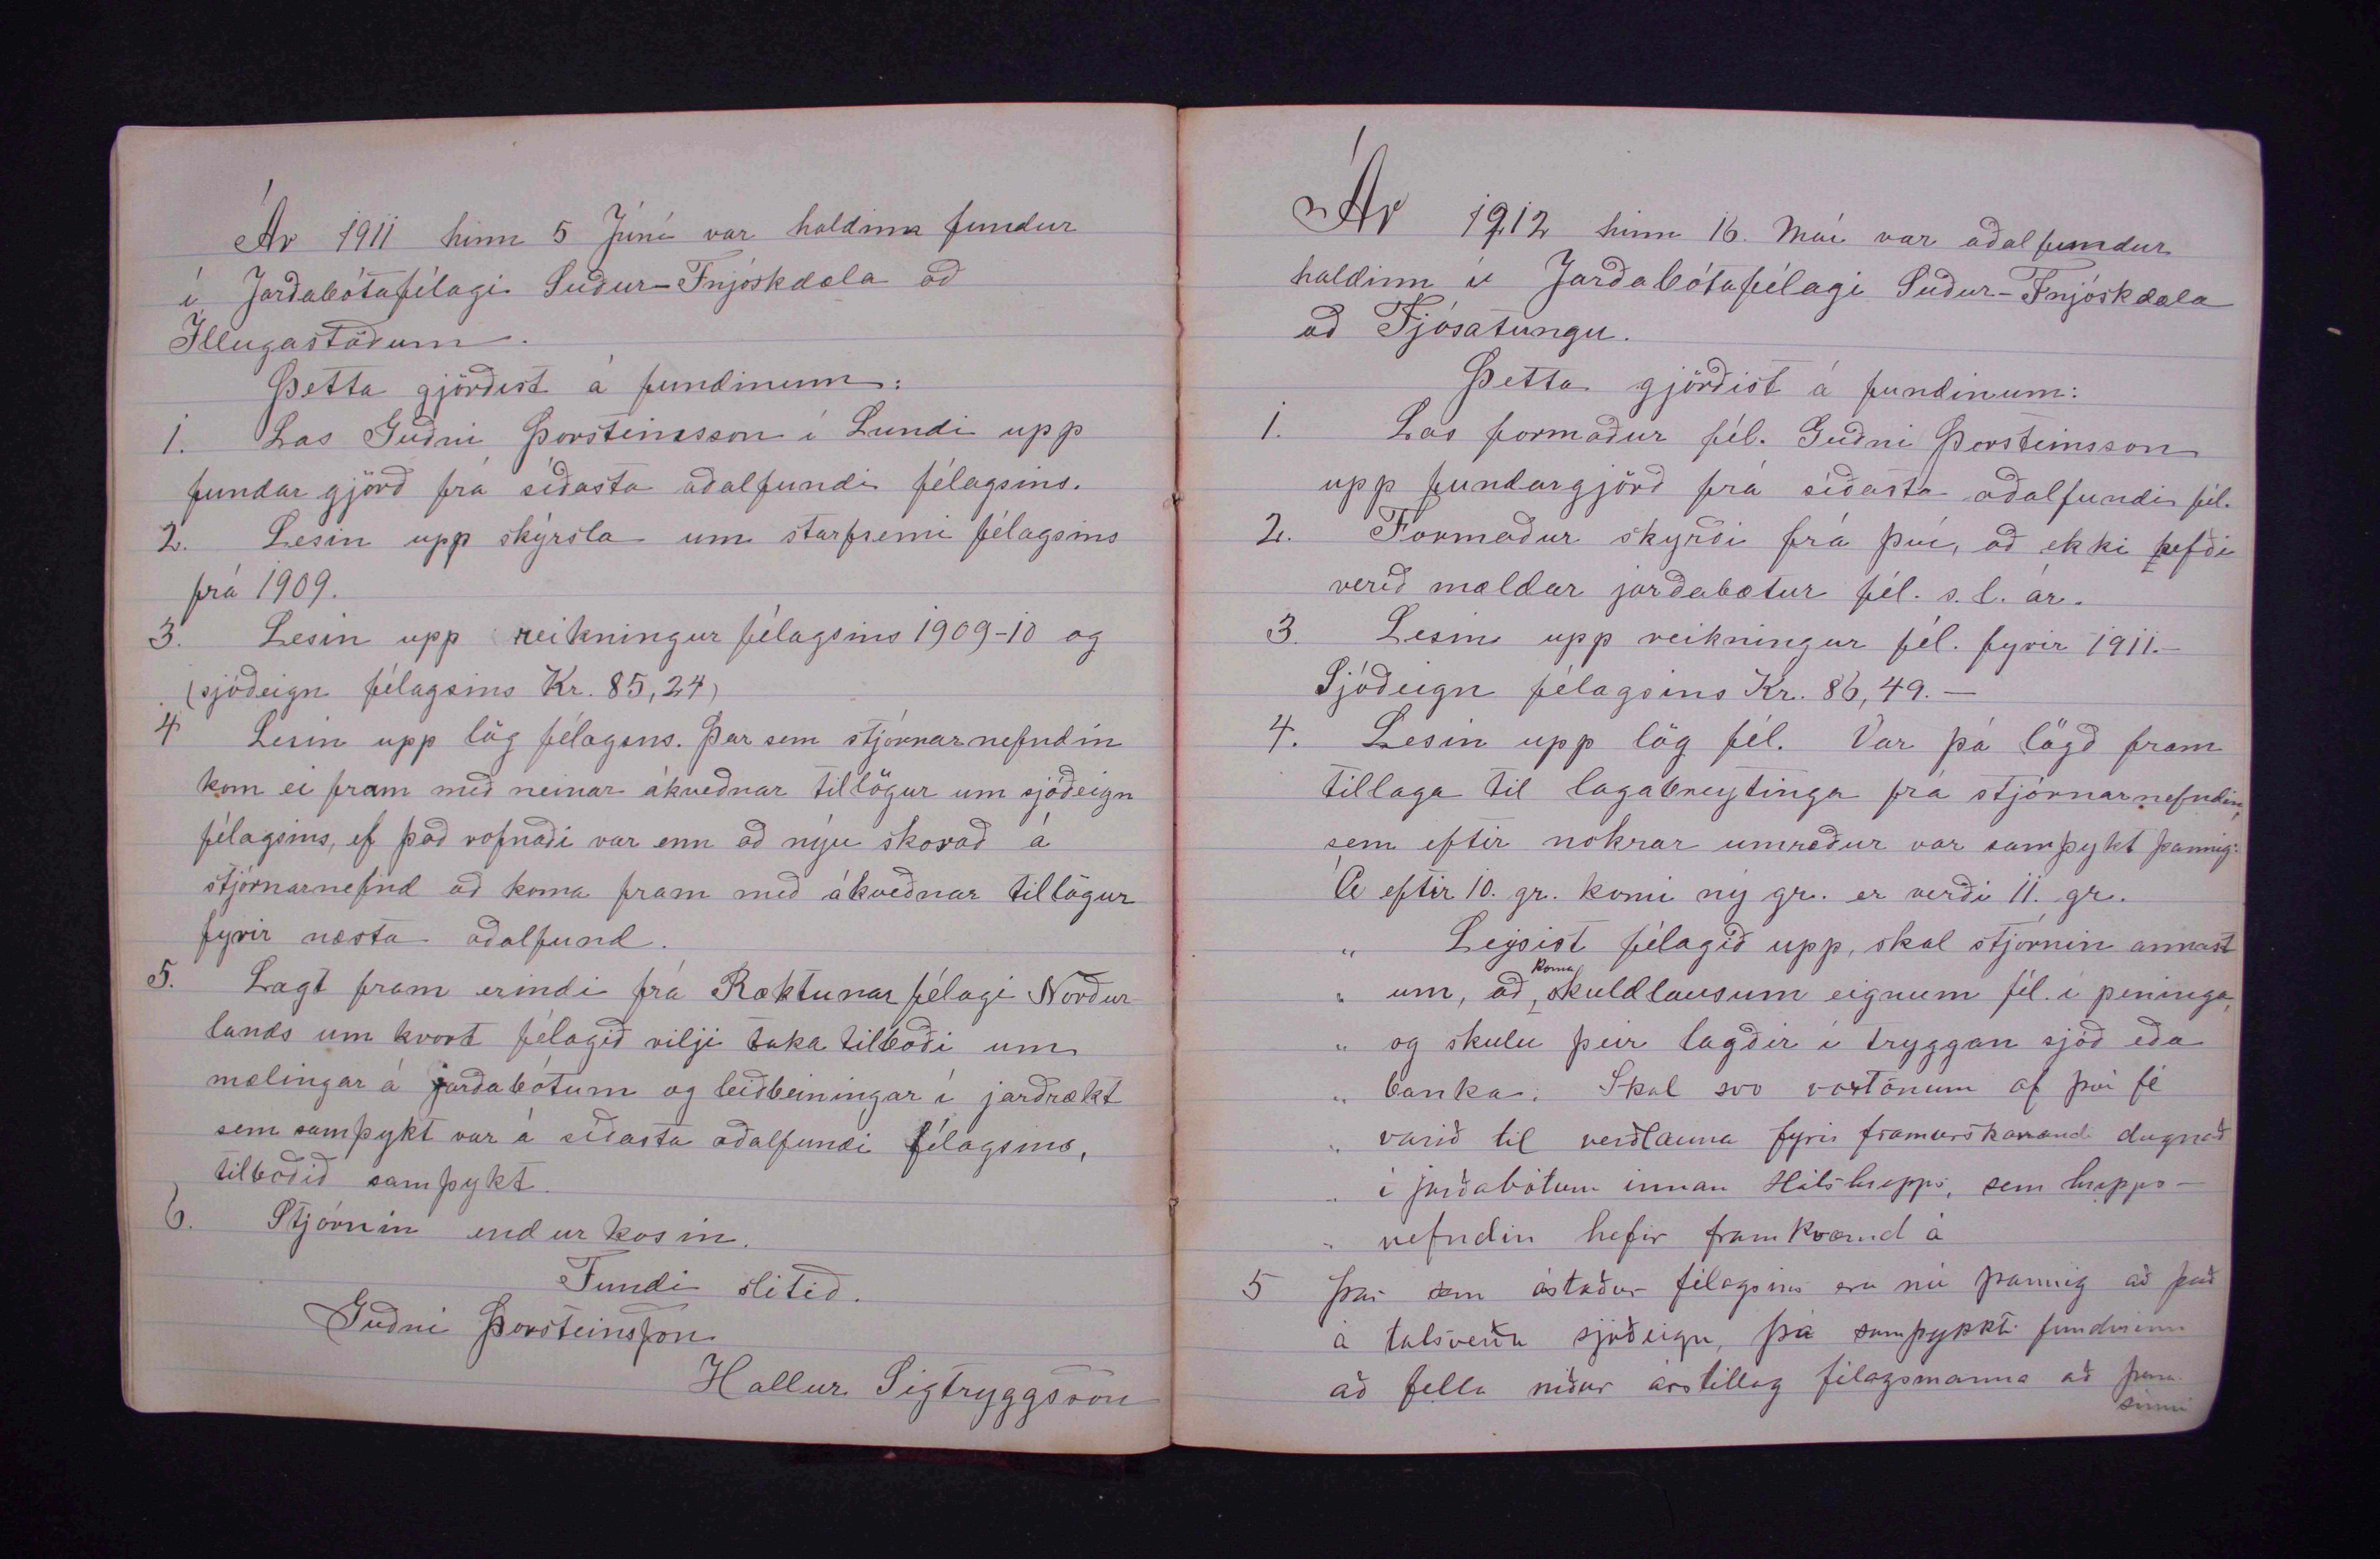 Ár 1911 hinn 5 Júní var haldinn fundur
í Jarðabótafélagi Suður-Fnjóskdæla að
Illugastöðum.
Þetta gjörðist á fundinum:
1. Las Guðni Þorsteinsson í Lundi upp
fundargjörð frá síðasta aðalfundi félagsins.
2. Lesin upp skýrsla um starfsemi félagsins
frá 1909.
3. Lesin upp reikningur félagsins 1909-10 og
(sjóðeign félagsins Kr. 85,24)
4 Lesin upp lög félagsns. Þar sem stjórnarnefndin
kom ei fram með neinar ákveðnar tillögur um sjóðeign
félagsins, ef það rofnaði var enn að nýju skorað á
stjórnarnefnd að koma fram með ákveðnar tillögur
fyrir næsta aðalfund.
5. Lagt fram erindi frá Ræktunarfélagi Norður
lands um hvort félagið vilji taka tilboði um
mælingar á jarðabótum og leiðbeiningar í jarðrækt
sem samþykt var á síðasta aðalfundi félagsins,
tilboðið samþykt.
6. Stjórnin endurkosin.
Fundi slitið.
Guðni Þorsteinsson
Hallur Sigtryggsson
Ár 1912 hinn 16. Maí var aðalfundur
haldinn í Jarðabótafélagi Suður-Fnjóskdæla
að Fjósatungu.
Þetta gjörðist á fundinum:
1. Las formaður fél. Guðni Þorsteinsson
upp fundargjörð frá síðasta aðalfundi fél.
2. Formaður skýrði frá því, að ekki hefði
verið mældar jarðabætur fél. s.l. ár.
3. Lesin upp reikningur fél. fyrir 1911.-
Sjóðeign félagsins Kr. 86,49.-
4. Lesin upp lög fél. Var þá lögð fram
tillaga til lagabreytinga frá stjórnarnefndin,
sem eftir nokrar umræður var samþykt þannig:
Á eftir 10. gr. komi ný gr. er verði 11. gr.
" Leysist félagið upp, skal stjórnin annast
" um, að koma skuldlausum eignum fél. í peninga,
" og skulu þeir lagðir í tryggan sjóð eða
" banka. Skal svo vöxtönum af því fé
" varið til verðlauna fyrir framurskarandi dugnað
" í jarðabótum innan Hálshrepps, sem hrepps-
" nefndin hefir framkvæmd á
5 Þar sem ástæður félagsins eru nú þannig að það
á talsverða sjóðeign, þá samþykkti fundurinn
að fella niður árstillag félagsmanna að þessu
sinni